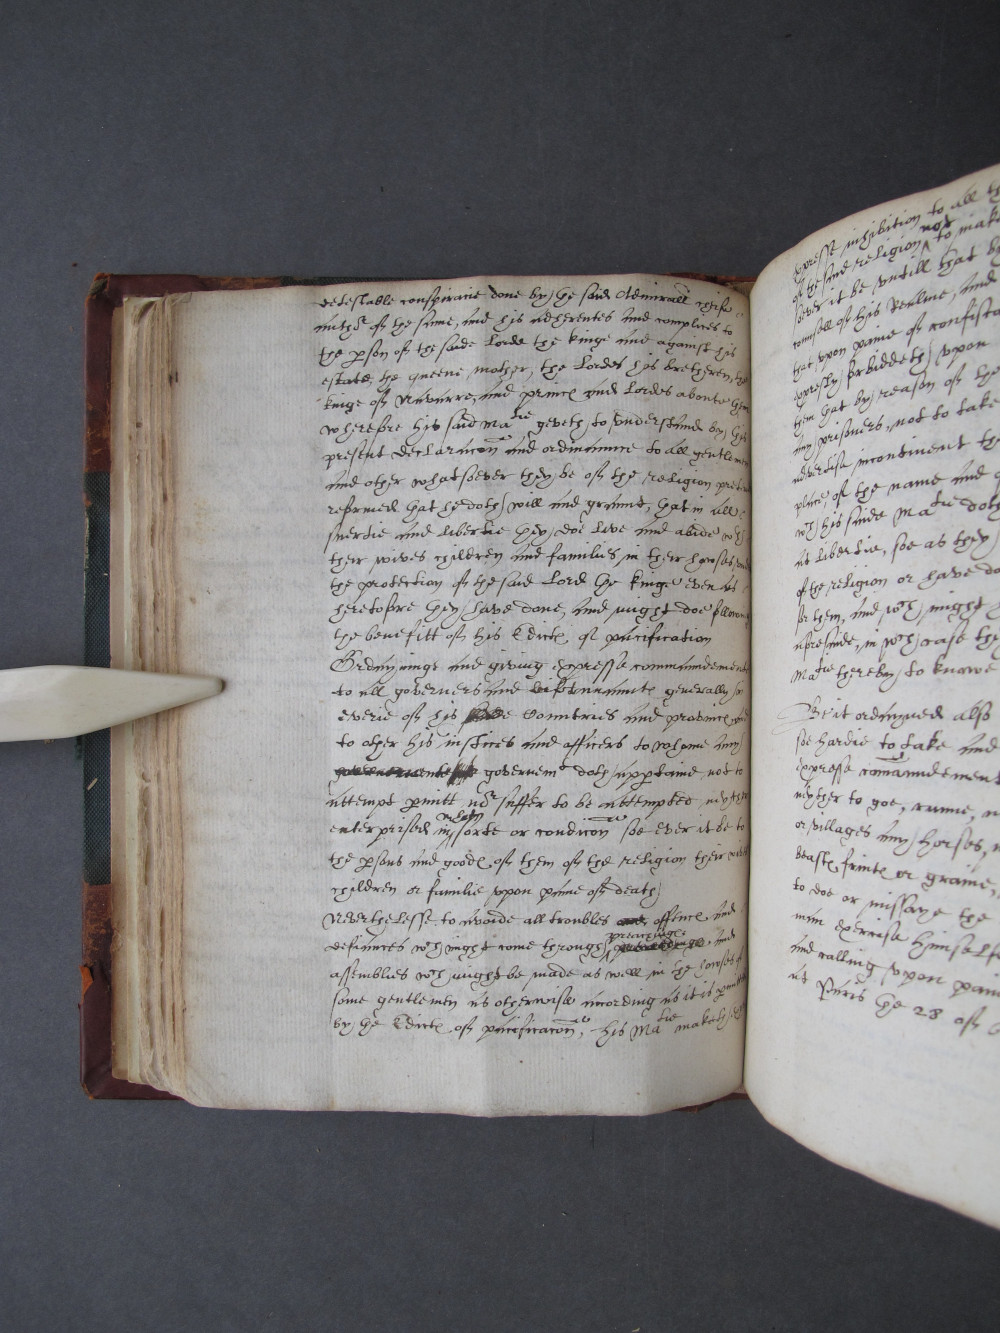 detestable conspiracie done by the said Admirall chife
auth^r of the same, and his adherentes and complices to
the pson of the saide Lorde the kinge and against his
estate, the queene mother, the Lordes his bretheren, the
kinge of Navarre, and princ and Lordes aboute them
wherefore his said Ma^tie geveth to understand by this
present declaracon and ordinaunce to all gentlemen
and other whatsoever they be of the religion
reformed that he doth will and graunt, that in all
suertie and libertie they doe live and abide wth
their wives children and families in their howses
the protection of the said Lord the kinge even as
heretofore they have done, and might doe
the benefitt of his Edict of pacification
Ordayninge and giving expresse commaundement
to all governers and generally
everie of his Countries and provinc
to other his iustices and officers to whome any
governem^t doth apptaine, not to
attempt pmitt no^r suffer to be attempted
enterprised in what sorte or condicon soe ever it be to
the psons and good of them of the religion their
children or familie upon paine of death
Neverthelesse to avoide all troubles offenc and
defiances wch might come through preachinge and
assemblies wch might be made as well in the howses of
some gentlemen as otherwise according as it is
by the Edict of pacificacon, his Ma^tie maketh
expresse inhibition to all
of the said religion not to make
soever it be untill that
counsell of his Realme, and
that upon paine of
expresly forbiddeth upon
them that by reason of the
any prisoners, not to take
advertise incontinent
place, of the name and
wth his saide Ma^tie doth
at libertie, soe as they
of the religion or have
for them, and wch might
aforesaide, in wch case
Ma^tie thereby to knowe
Be it ordayned also
soe hardie to take and
expresse comaundement
neyther to goe, runne,
or villages any horses,
beast, fruit or graine,
to doe or missaye the
man exercise himselfe
and calling upon paine
at Paris the 28 of